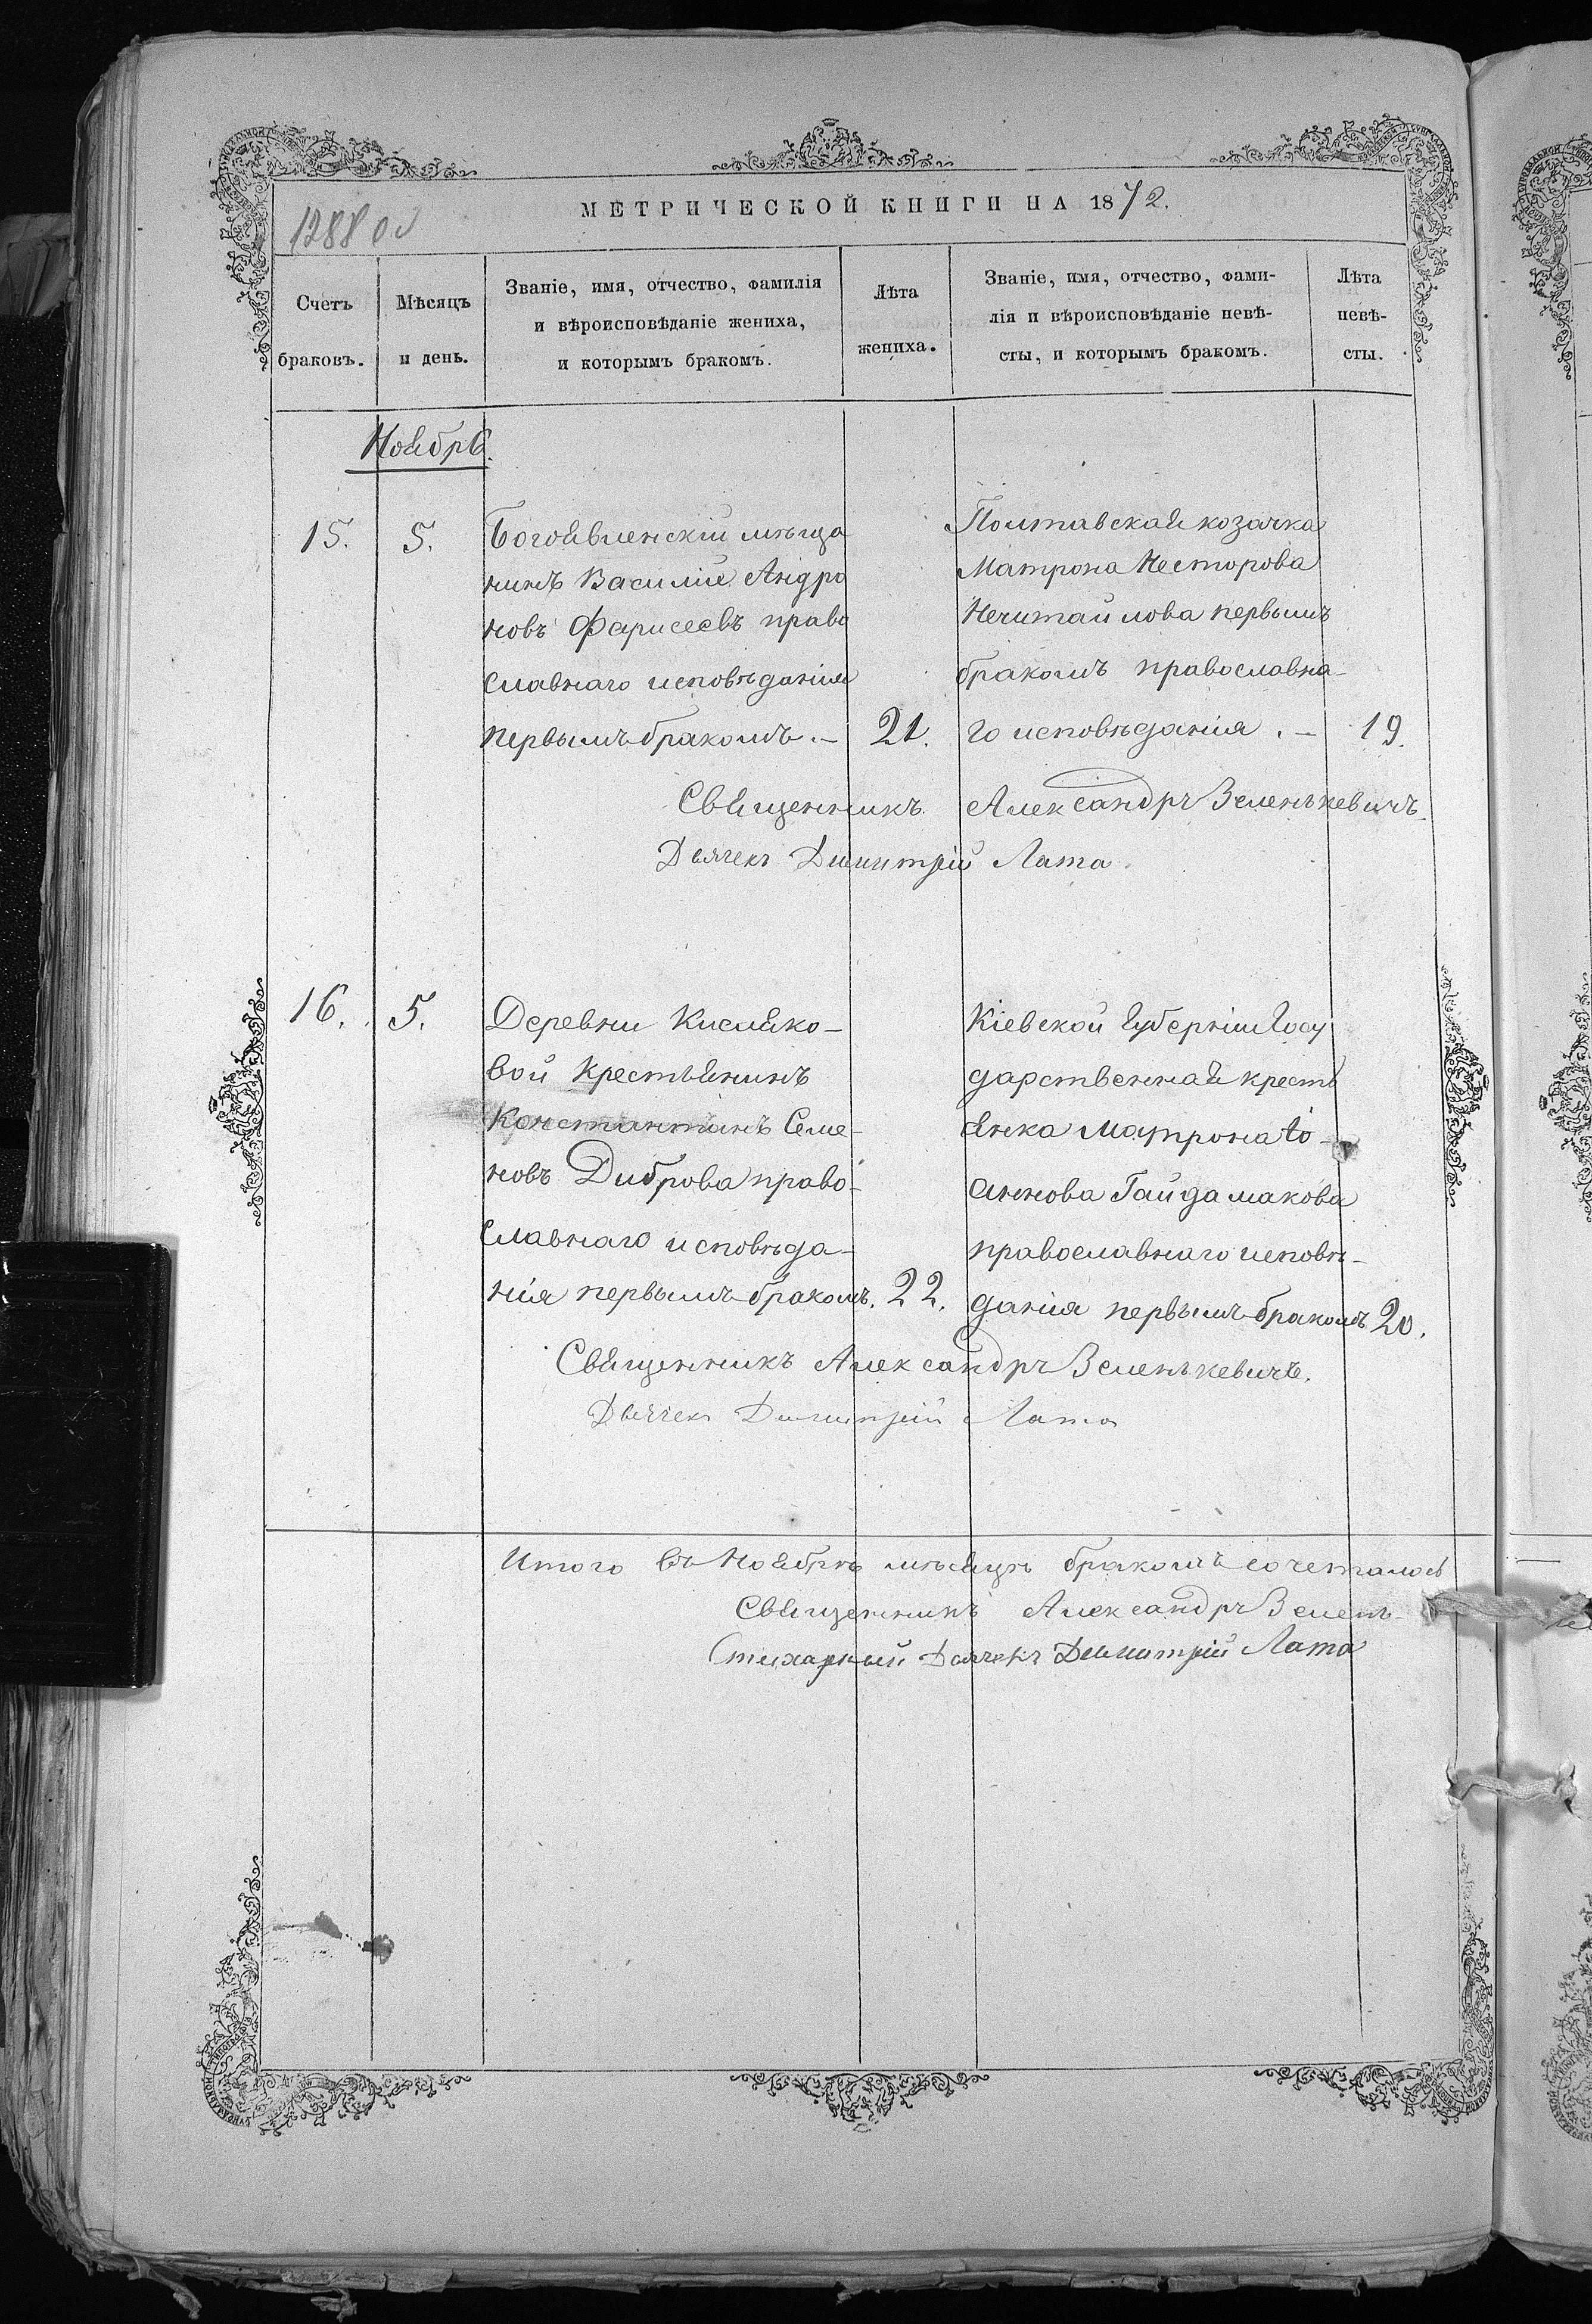 1288 об
МЕТРИЧЕСКОЙ КНИГИ НА 1872.
Счетъ браковъ.
Мѣсяцъ и день.
Званіе, имя, отчество, фамилія
и вѣроисповѣданіе жениха,
и которымъ бракомъ.
Лѣта жениха.
Званіе, имя, отчество, фами-
лія и вѣроисповѣданіе невѣ-
сты, и которымъ бракомъ.
Лѣта невѣ-
сты.
Ноябрь.
15. 5.
Богоявленскій мѣща
нинъ Василій Андро
новъ Фарисеевъ право
славнаго исповѣданія
первымъ бракомъ. – 21.
Полтавская козачка
Матрона Несторова
Нечитайлова первымъ
бракомъ православна-
го исповѣданія. – 19.
Священникъ Александръ Зеленькевичъ.
Дьячекъ Димитрій Лата.
16. 5.
Деревни Кисляко-
вой крестьянинъ
Константинъ Семе-
новъ Диброва право-
славнаго исповѣда-
нія первымъ бракомъ. 22.
Кіевской губерніи Госу
дарственная кресть
янка Матрона Іо-
аннова Гайдамакова
православнаго исповѣ-
данія первымъ бракомъ 20.
Священникъ Александръ Зеленькевичъ.
Дьячекъ Димитрій Лата
Итого въ Ноябрѣ мѣсяцѣ бракомъ сочеталось
Священникъ Александръ Зелень-
Стихарный Дьячекъ Димитрій Лата